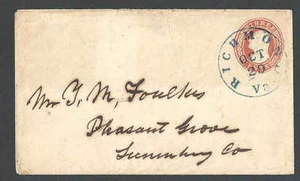 THREE
RICHMOND
OCT
20
Va
Mr T. M. Foulkes
Pleasant Grove
Lunenburg Co